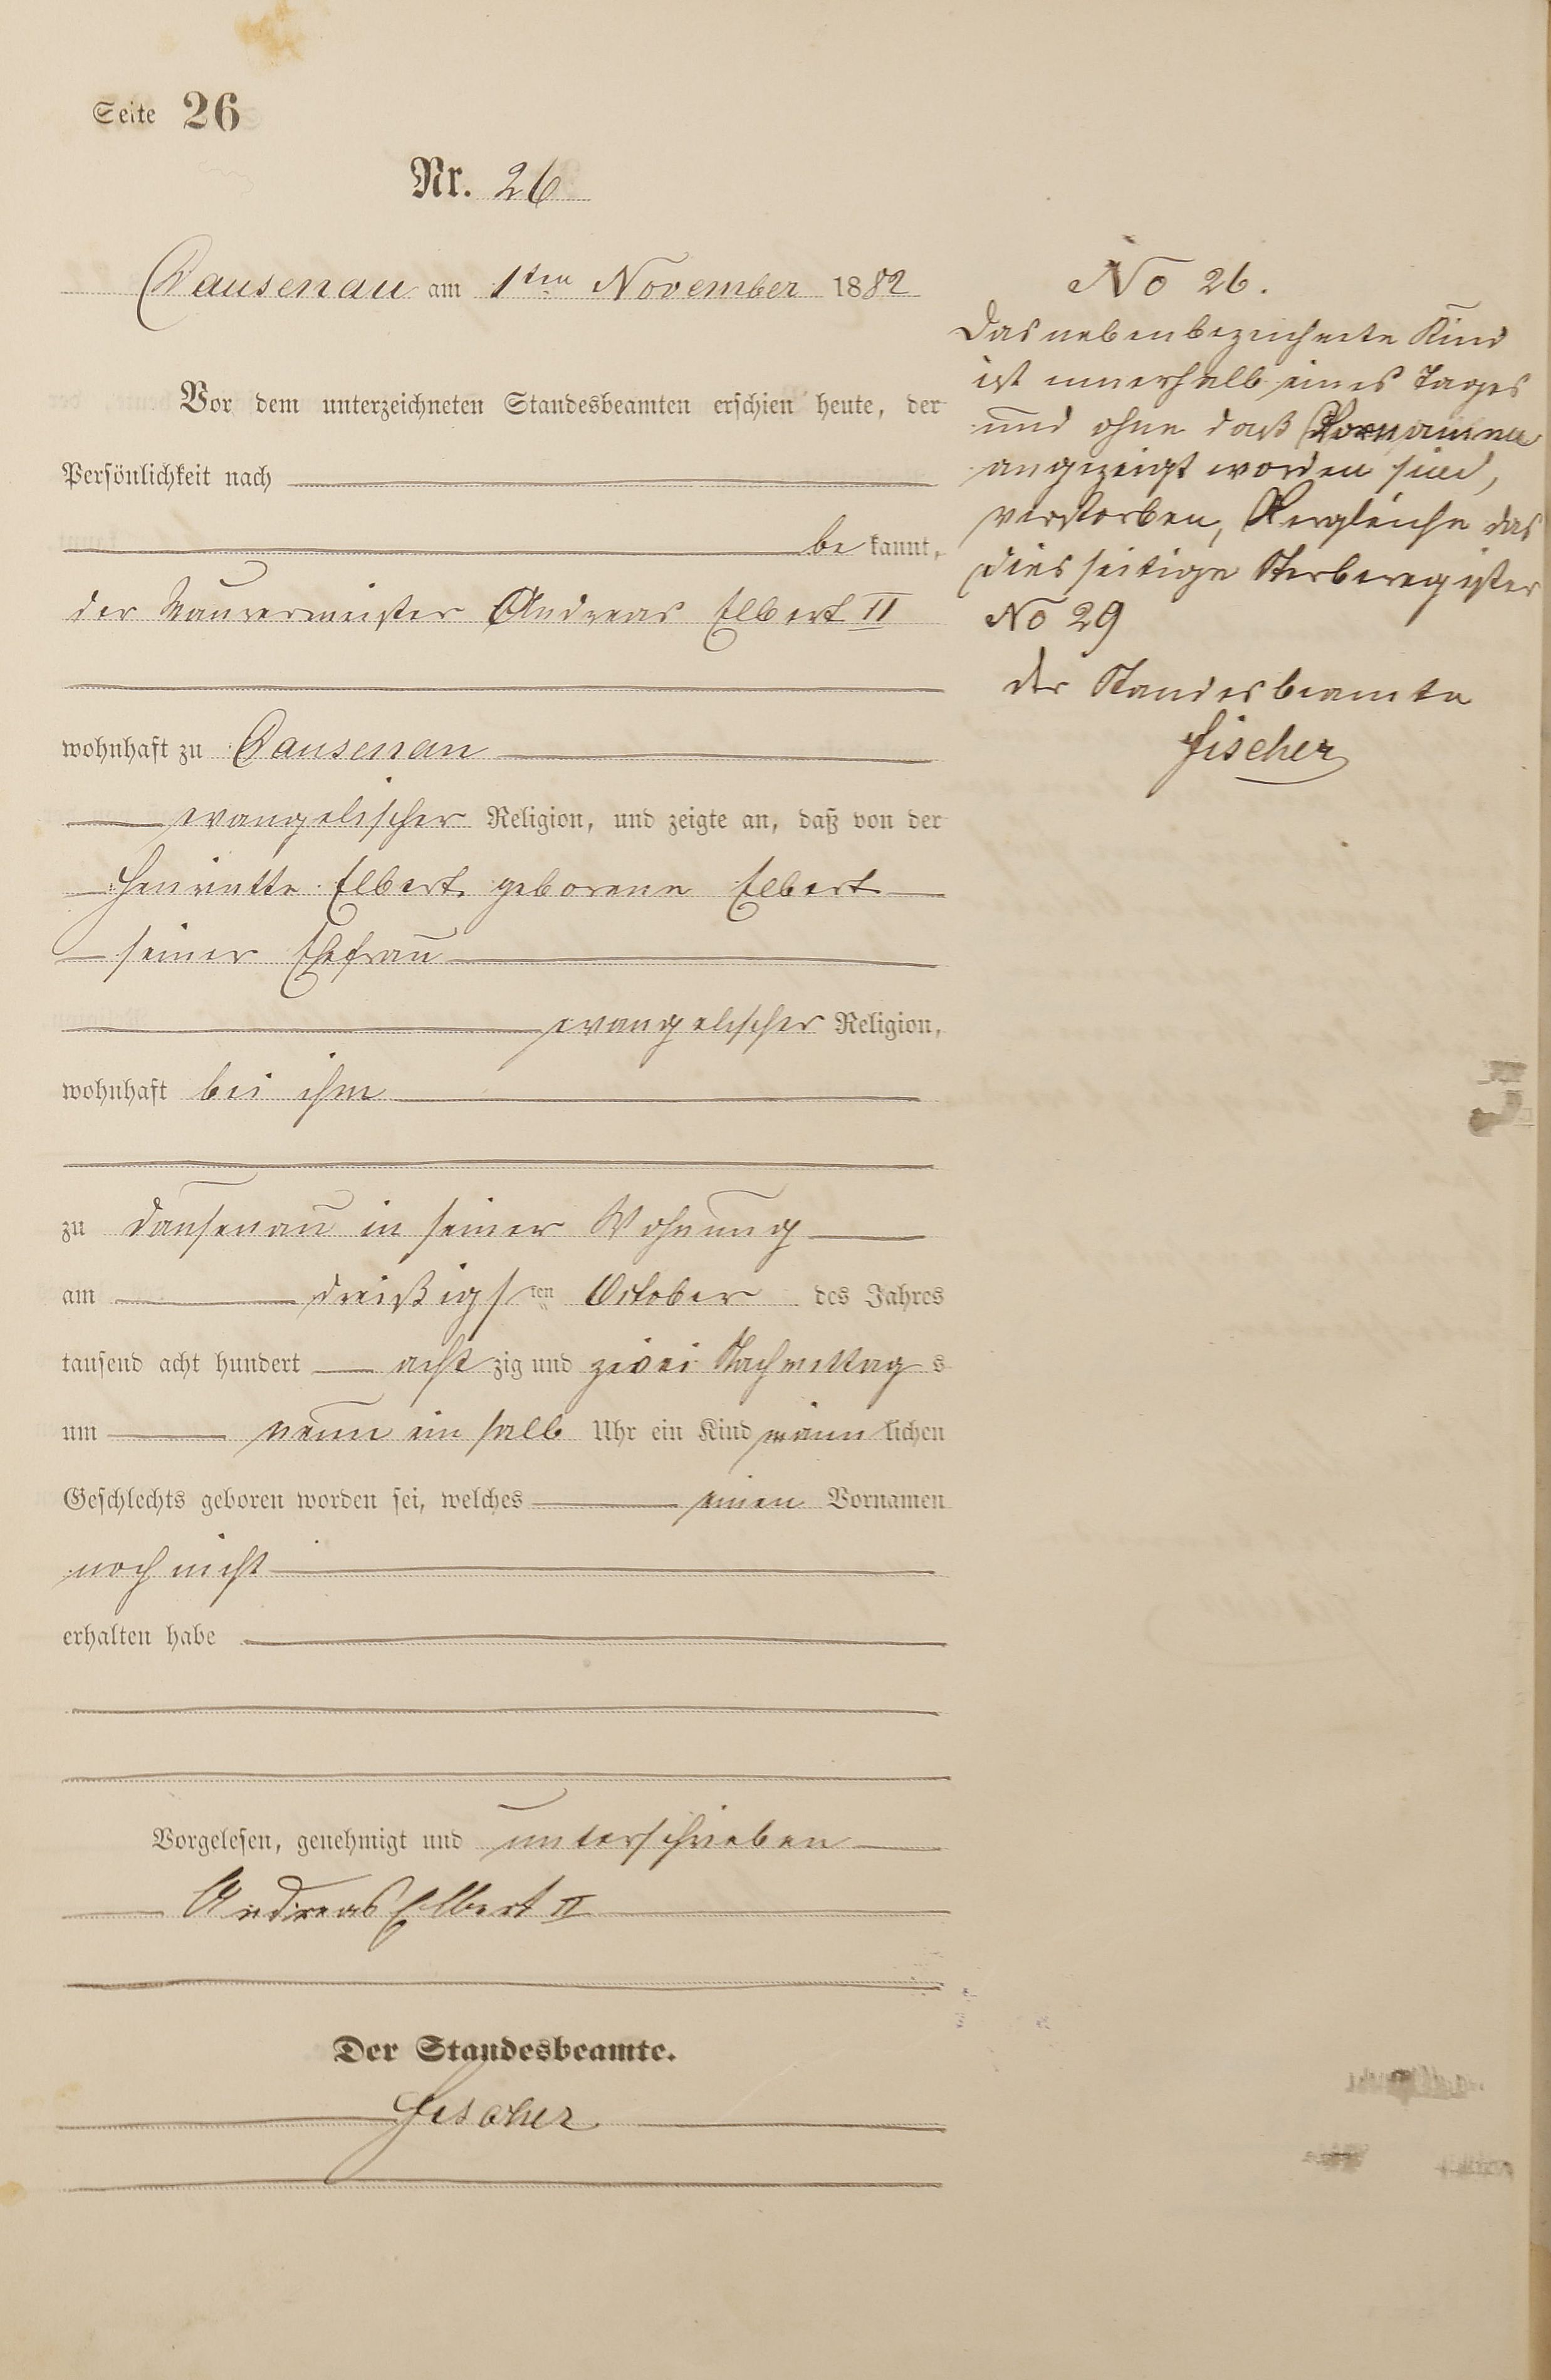 Seite 26
Nr. 26
Dausenau am 1ten November 1882
Vor dem unterzeichneten Standesbeamten erschien heute, der
Persönlichkeit nach
be kannt,
der Maurermeister Andreas Elbert II
wohnhaft zu Dausenau
evangelischer Religion, und zeigte an, daß von der
Henriette Elbert geborene Elbert
seiner Ehefrau
evangelischer Religion,
wohnhaft bei ihm
zu Dausenau in seiner Wohnung
am dreißigsten October des Jahres
tausend acht hundert acht zig und zwei Nachmittag s
um neun ein halb Uhr ein Kind männ lichen
Geschlechts geboren worden sei, welches einen Vornamen
noch nicht
erhalten habe
Vorgelesen, genehmigt und unterschrieben
Andreas Elbert II
Der Standesbeamte.
Fischer
No 26.
Das nebenbezeichnete Kind
ist innerhalb eines Tages
und ohne daß Vornamen
angezeigt worden sind,
verstorben, Vergleiche das
diesseitige Sterberegister
No 29
der Standesbeamte
Fischer